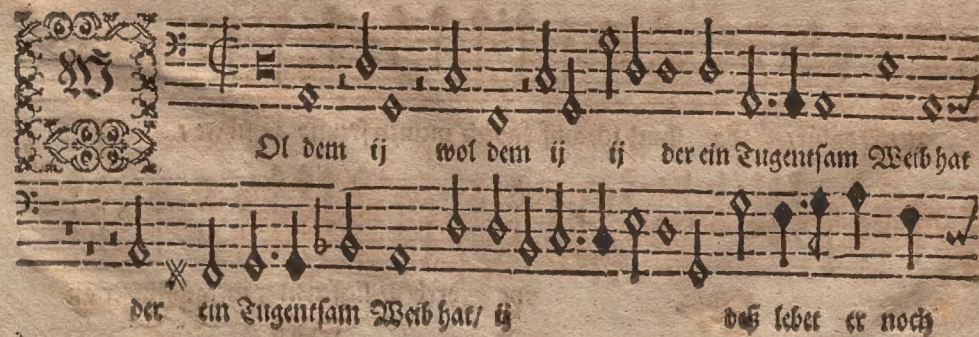 W
Ol dem ij wol dem ij ij der ein Tugentsam Weib hat
der ein Tugentsam Weib hat/ ij deß lebet er noch